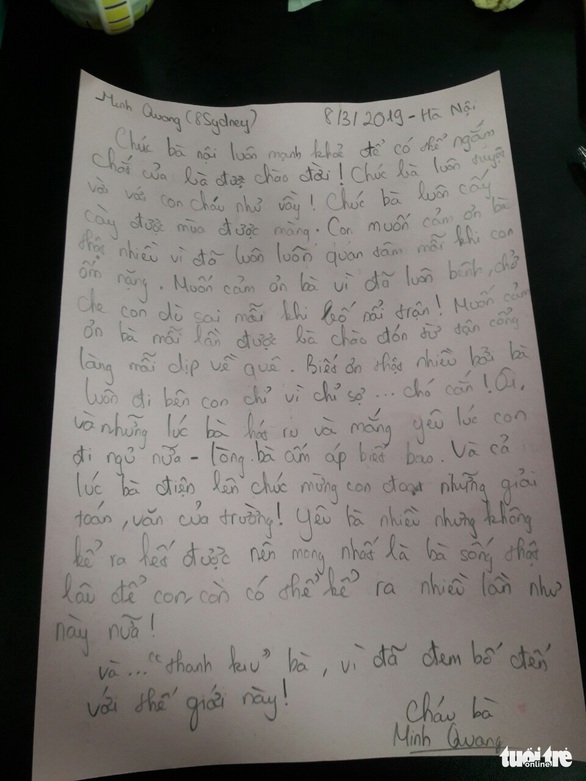 Minh Quang (8Sydney) 8/3/2019 - Hà Nội
Chúc bà nội luôn mạnh khoẻ để có thể ngắm
chắt của bà được chào đời! Chúc bà luôn tuyệt
vời với con cháu như vậy! Chúc bà luôn cấy
cày được mùa được màng. Con muốn cảm ơn bà
thật nhiều vì đã luôn luôn quan tâm mỗi khi con
ốm nặng. Muốn cảm ơn bà vì đã luôn bênh, chở
che con dù sai mỗi khi bố nổi trận! Muốn cảm
ơn bà mỗi lần được bà chào đón từ tận cổng
làng mỗi dịp về quê. Biết ơn thật nhiều bởi bà
luôn đi bên con chỉ vì chỉ sợ... chó cắn! Ôi,
và những lúc bà hát ru và mắng yêu lúc con
đi ngủ nữa - lòng bà ấm áp biết bao. Và cả
lúc bà điện lên chúc mừng con đoạt những giải
toán, văn của trường! Yêu bà nhiều nhưng không
kể ra hết được nên mong nhất là bà sống thật
lâu để con còn có thể kể ra nhiều lần như
này nữa!
và... "thanh kiu" bà, vì đã đem bố đến
với thế giới này!
Cháu bà
Minh Quang
tuổi trẻ
online